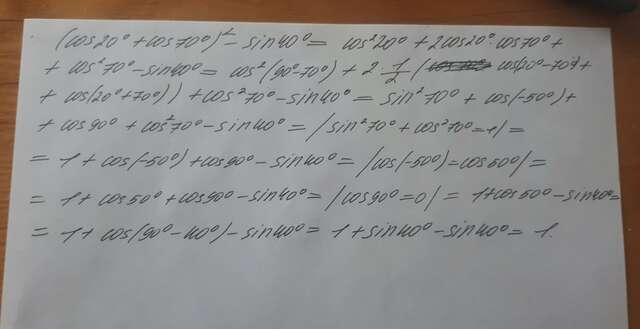 (cos20° + cos70°)² - sin40° = cos²20° + 2cos20° · cos70° +
+ cos²70° - sin40° = cos²(90°-70°) + 2 1/2 (cos(20°-70°) +
+ cos(20°+70°)) + cos²70° - sin40° = sin²70° + cos(-50°) +
+ cos90° + cos²70° - sin40° = /sin²70° + cos²70° = 1/ =
= 1 + cos(-50°) + cos90° - sin40° = /cos(-50°) = cos50°/ =
= 1 + cos50° + cos90° - sin40° = /cos90° = 0/ = 1 + cos50° - sin40° =
= 1 + cos(90° - 40°) - sin40° = 1 + sin40° - sin40° = 1.